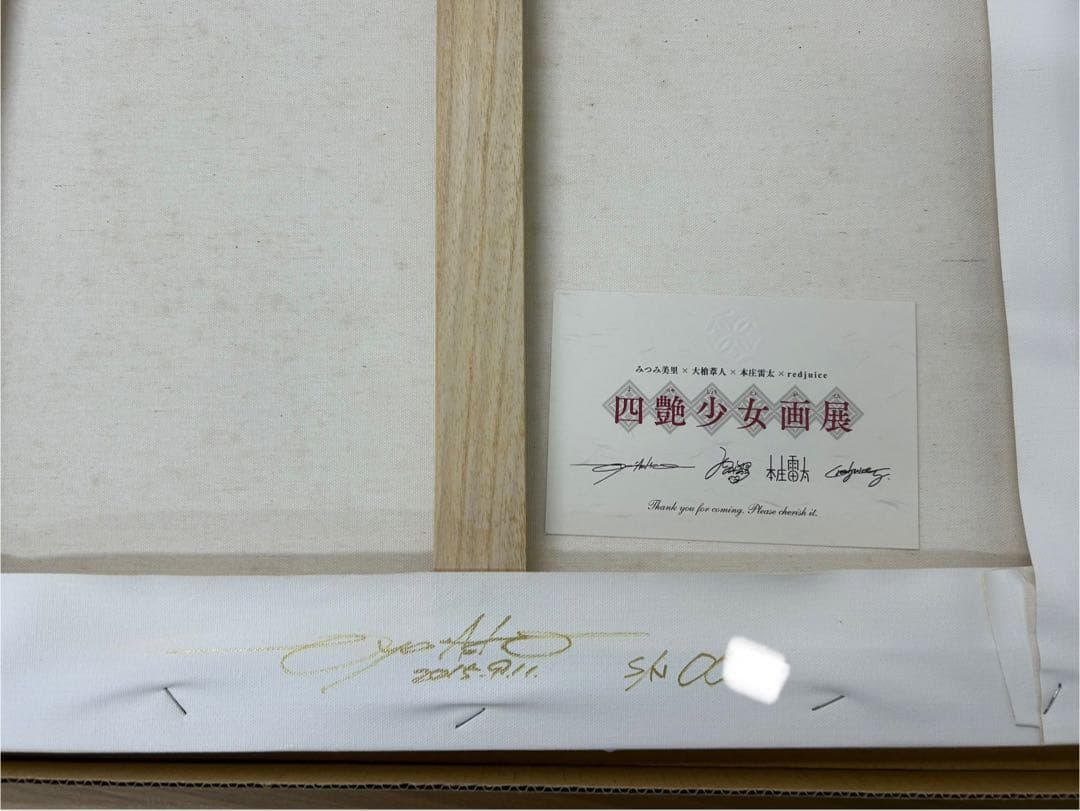 みつみ美里×大槍葦人×本庄雷太×redjuice
四艶少女画展
本庄雷太 redjuice
Thank you for coming. Please cherish it.
2015.9.11.
S/N 00